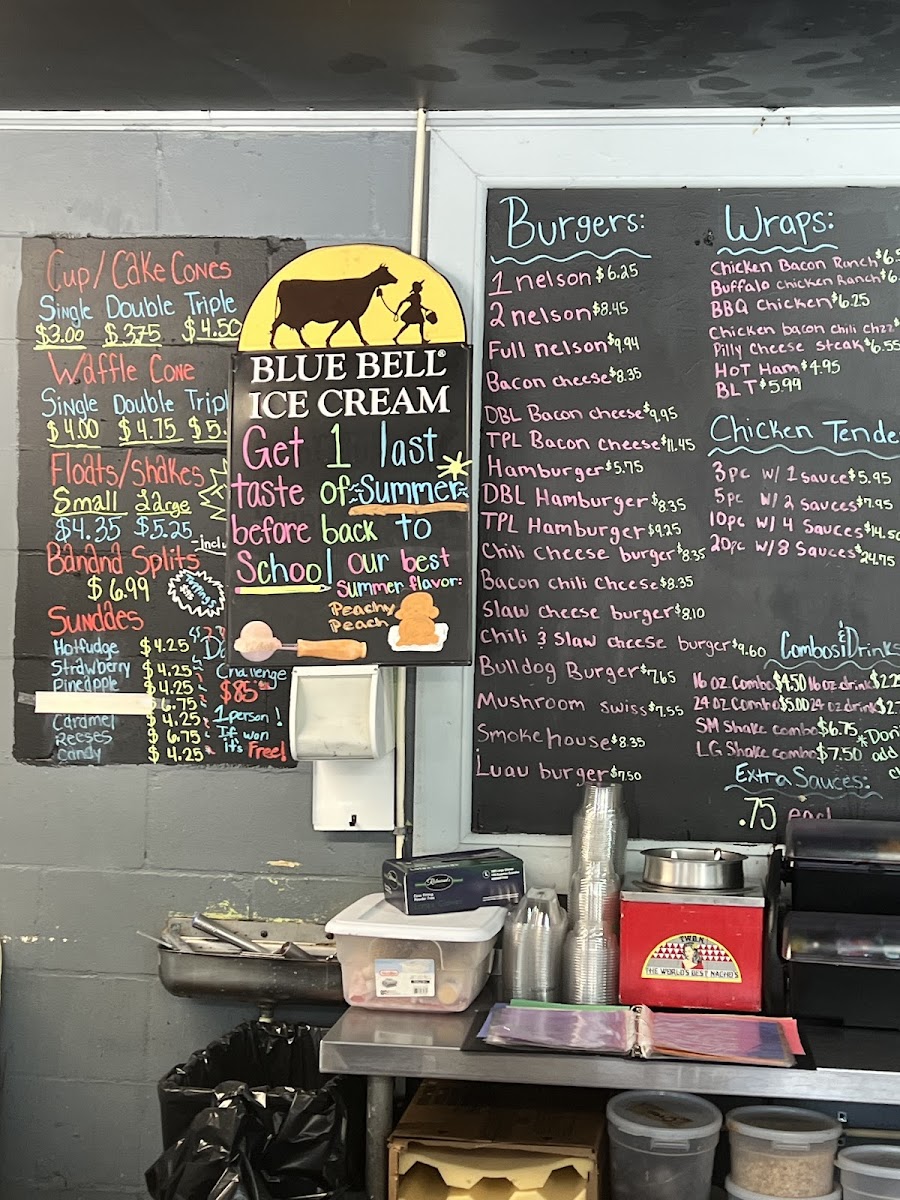 Cup/Cake Cones
Single Double Triple
$3.00 $3.75 $4.50
Waffle Cone
Single Double Tripl
$4.00 $4.75 $5.
Floats/Shakes
Small Large
$4.35 $5.25
Banana Splits
$6.99
Sundaes
Hotfudge $4.25
Strawberry $4.25
Pineapple $4.25
6.75
Caramel $4.25
Reeses $6.75
Candy $4.25
Challenge
$85
1 person!
If won
it's Free!
BLUE BELL®
ICE CREAM
Get 1 last
taste of Summer
before back to
School our best
Summer flavor:
Peachy
Peach
Burgers:
1 nelson $6.25
2 nelson $8.45
Full nelson $9.94
Bacon cheese $8.35
DBL Bacon cheese $9.95
TPL Bacon cheese $11.45
Hamburger $5.75
DBL Hamburger $8.35
TPL Hamburger $9.25
Chili cheese burger $8.35
Bacon chili cheese $8.35
Slaw cheese burger $8.10
Chili & Slaw cheese burger $9.60
Bulldog Burger $7.65
Mushroom Swiss $7.55
Smokehouse $8.35
Luau burger $7.50
Wraps:
Chicken Bacon Ranch $6.5
Buffalo chicken Ranch $6.
BBQ Chicken $6.25
Chicken bacon chili chzz
Pilly Cheese steak $6.55
HOT Ham $4.95
BLT $5.99
Chicken Tende
3pc w/ 1 sauce $5.95
5pc w/ 2 sauces $7.95
10pc w/ 4 Sauces $14.50
20pc w/ 8 Sauces $24.75
Combos & Drinks
16 oz Combo $4.50 16 oz drink $2.2
24 oz Combo $5.00 24 oz drink $2.7
SM Shake combo $6.75
LG Shake combo $7.50
*Don
add
Extra Sauces:
.75 each
THE WORLD'S BEST NACHOS